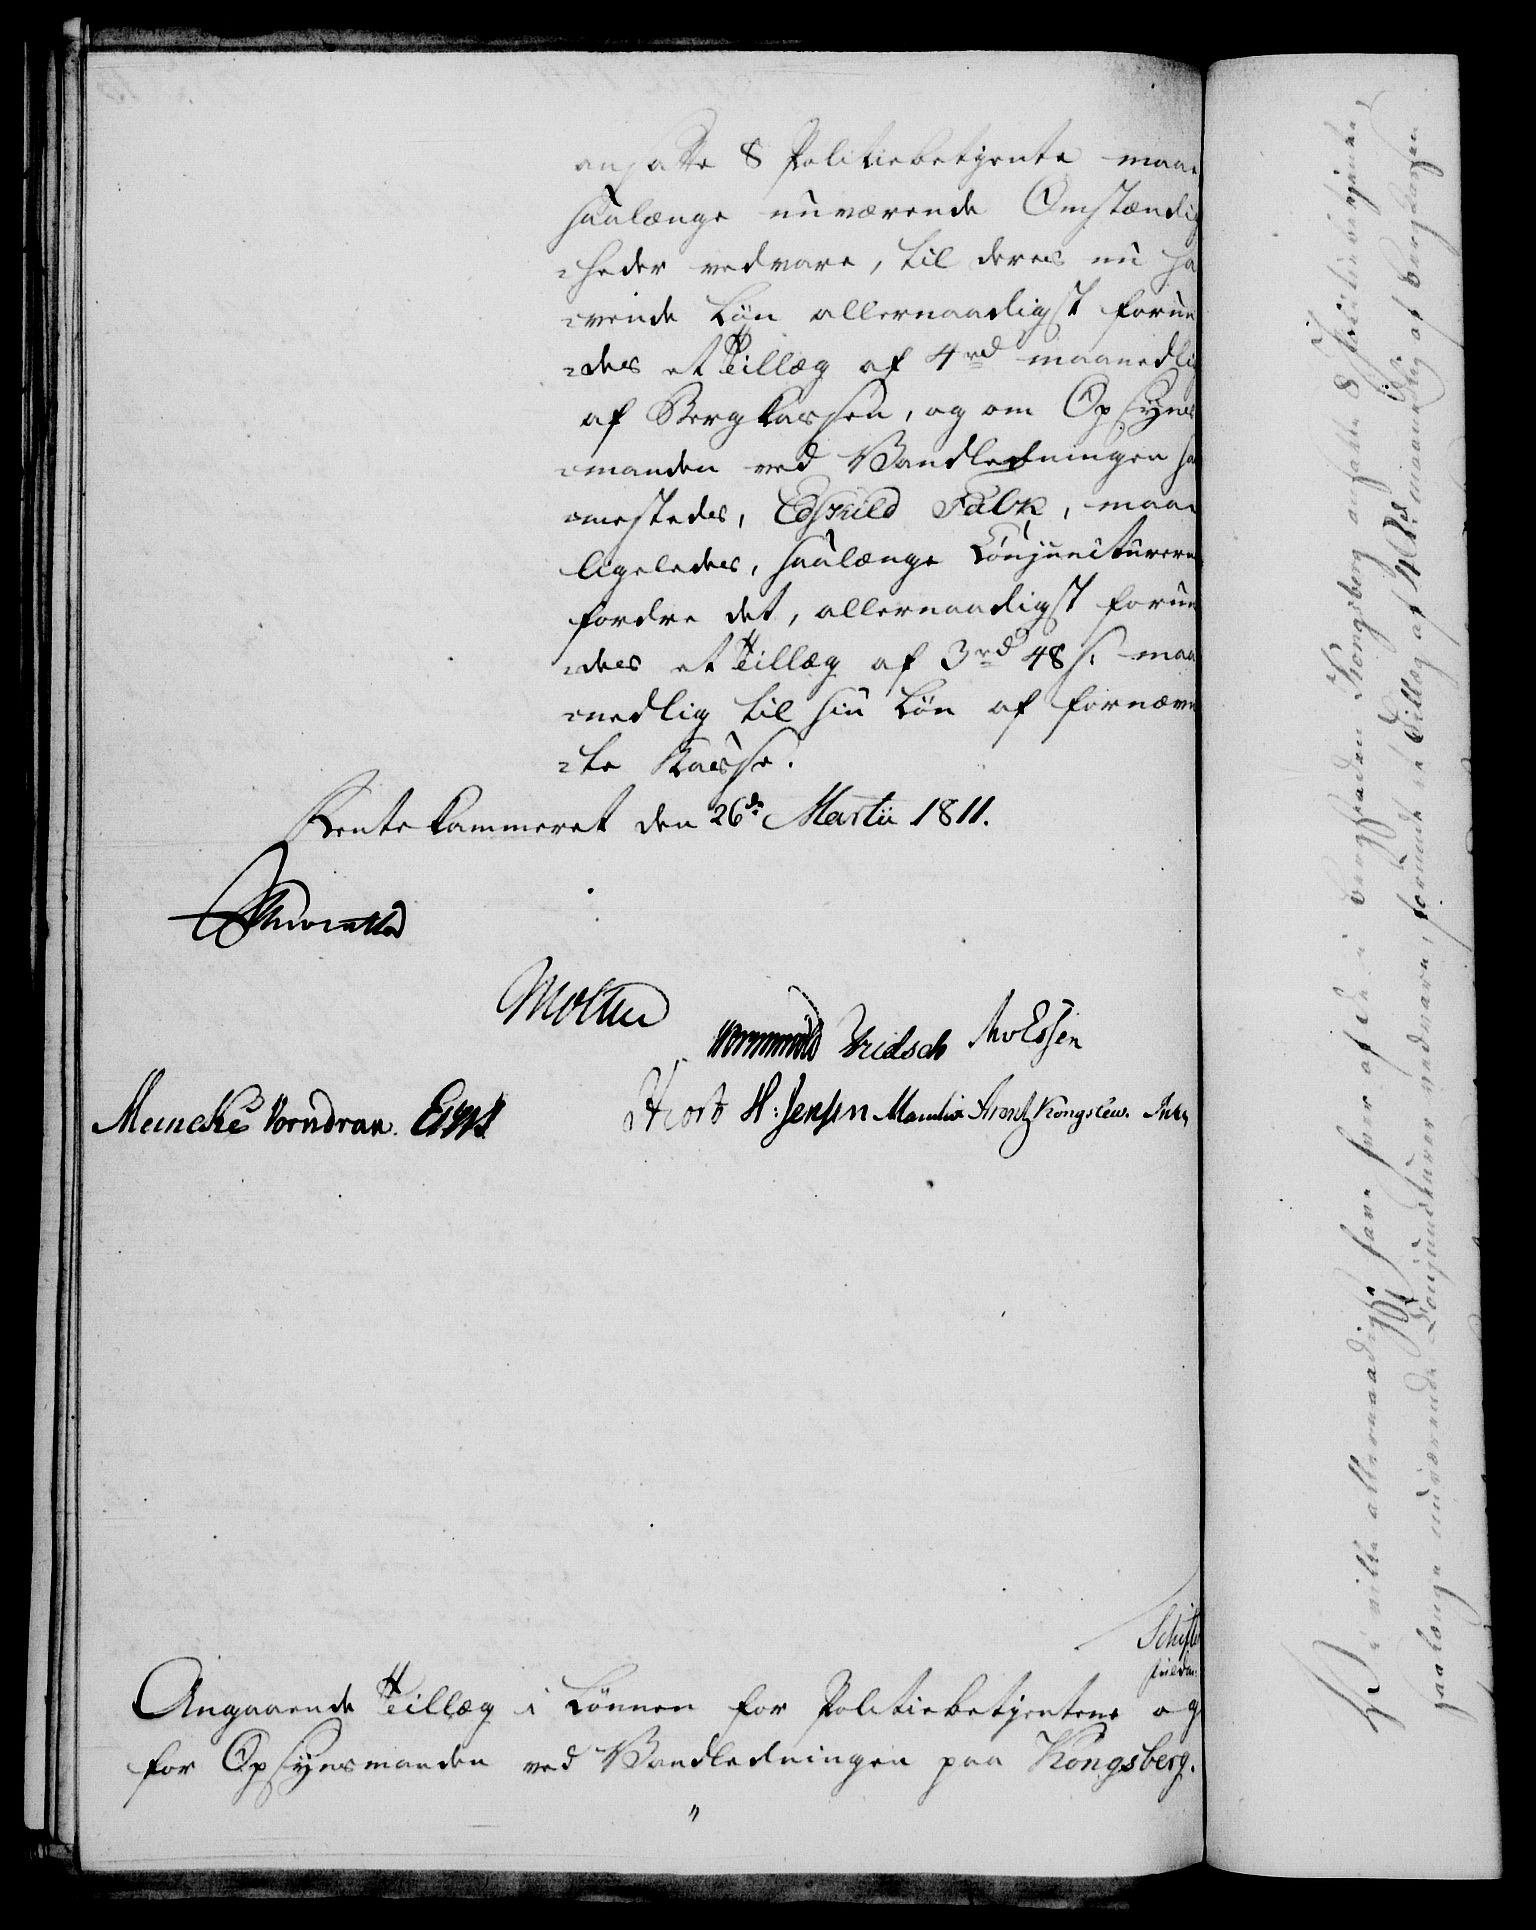 ansatte 8 Politiebetjente maae
saalænge nuværende Omstændig
=heder vedvare, til deres nu ha
=vende Løn allernaadigst forun
=des et Tillæg af 4 rd maanedlig
af Bergkassen, og om Opsyns
=manden ved Vandledningen sa
=mestedes, Edskild Falk, maae
ligeledes, saalænge Conjuncturerne
fordre det, allernaadigst forun
=des et Tillæg af 3 rd 48 s. maa
=nedlig til sin Løn af fornævn
=te Kasse.
Rentekammeret den 26de Martii 1811.
Moltke
Wormskiold Vridsch
Meincke Vorndran.
Hiort H: Jensen Arentz Kongslew.
Angaaende Tillæg i Lønnen for Politiebetjentene og
for Opsynsmanden ved Vandledningen paa Kongsberg.
"
Vi ville allernaadigst have hver af de i Bergstaden Kongsberg ansatte 8 Politiebetjente,
saalænge nuværende Conjuncturer vedvare, forundt et Tillæg af 4 Rd. maanedlig af Bergkassen